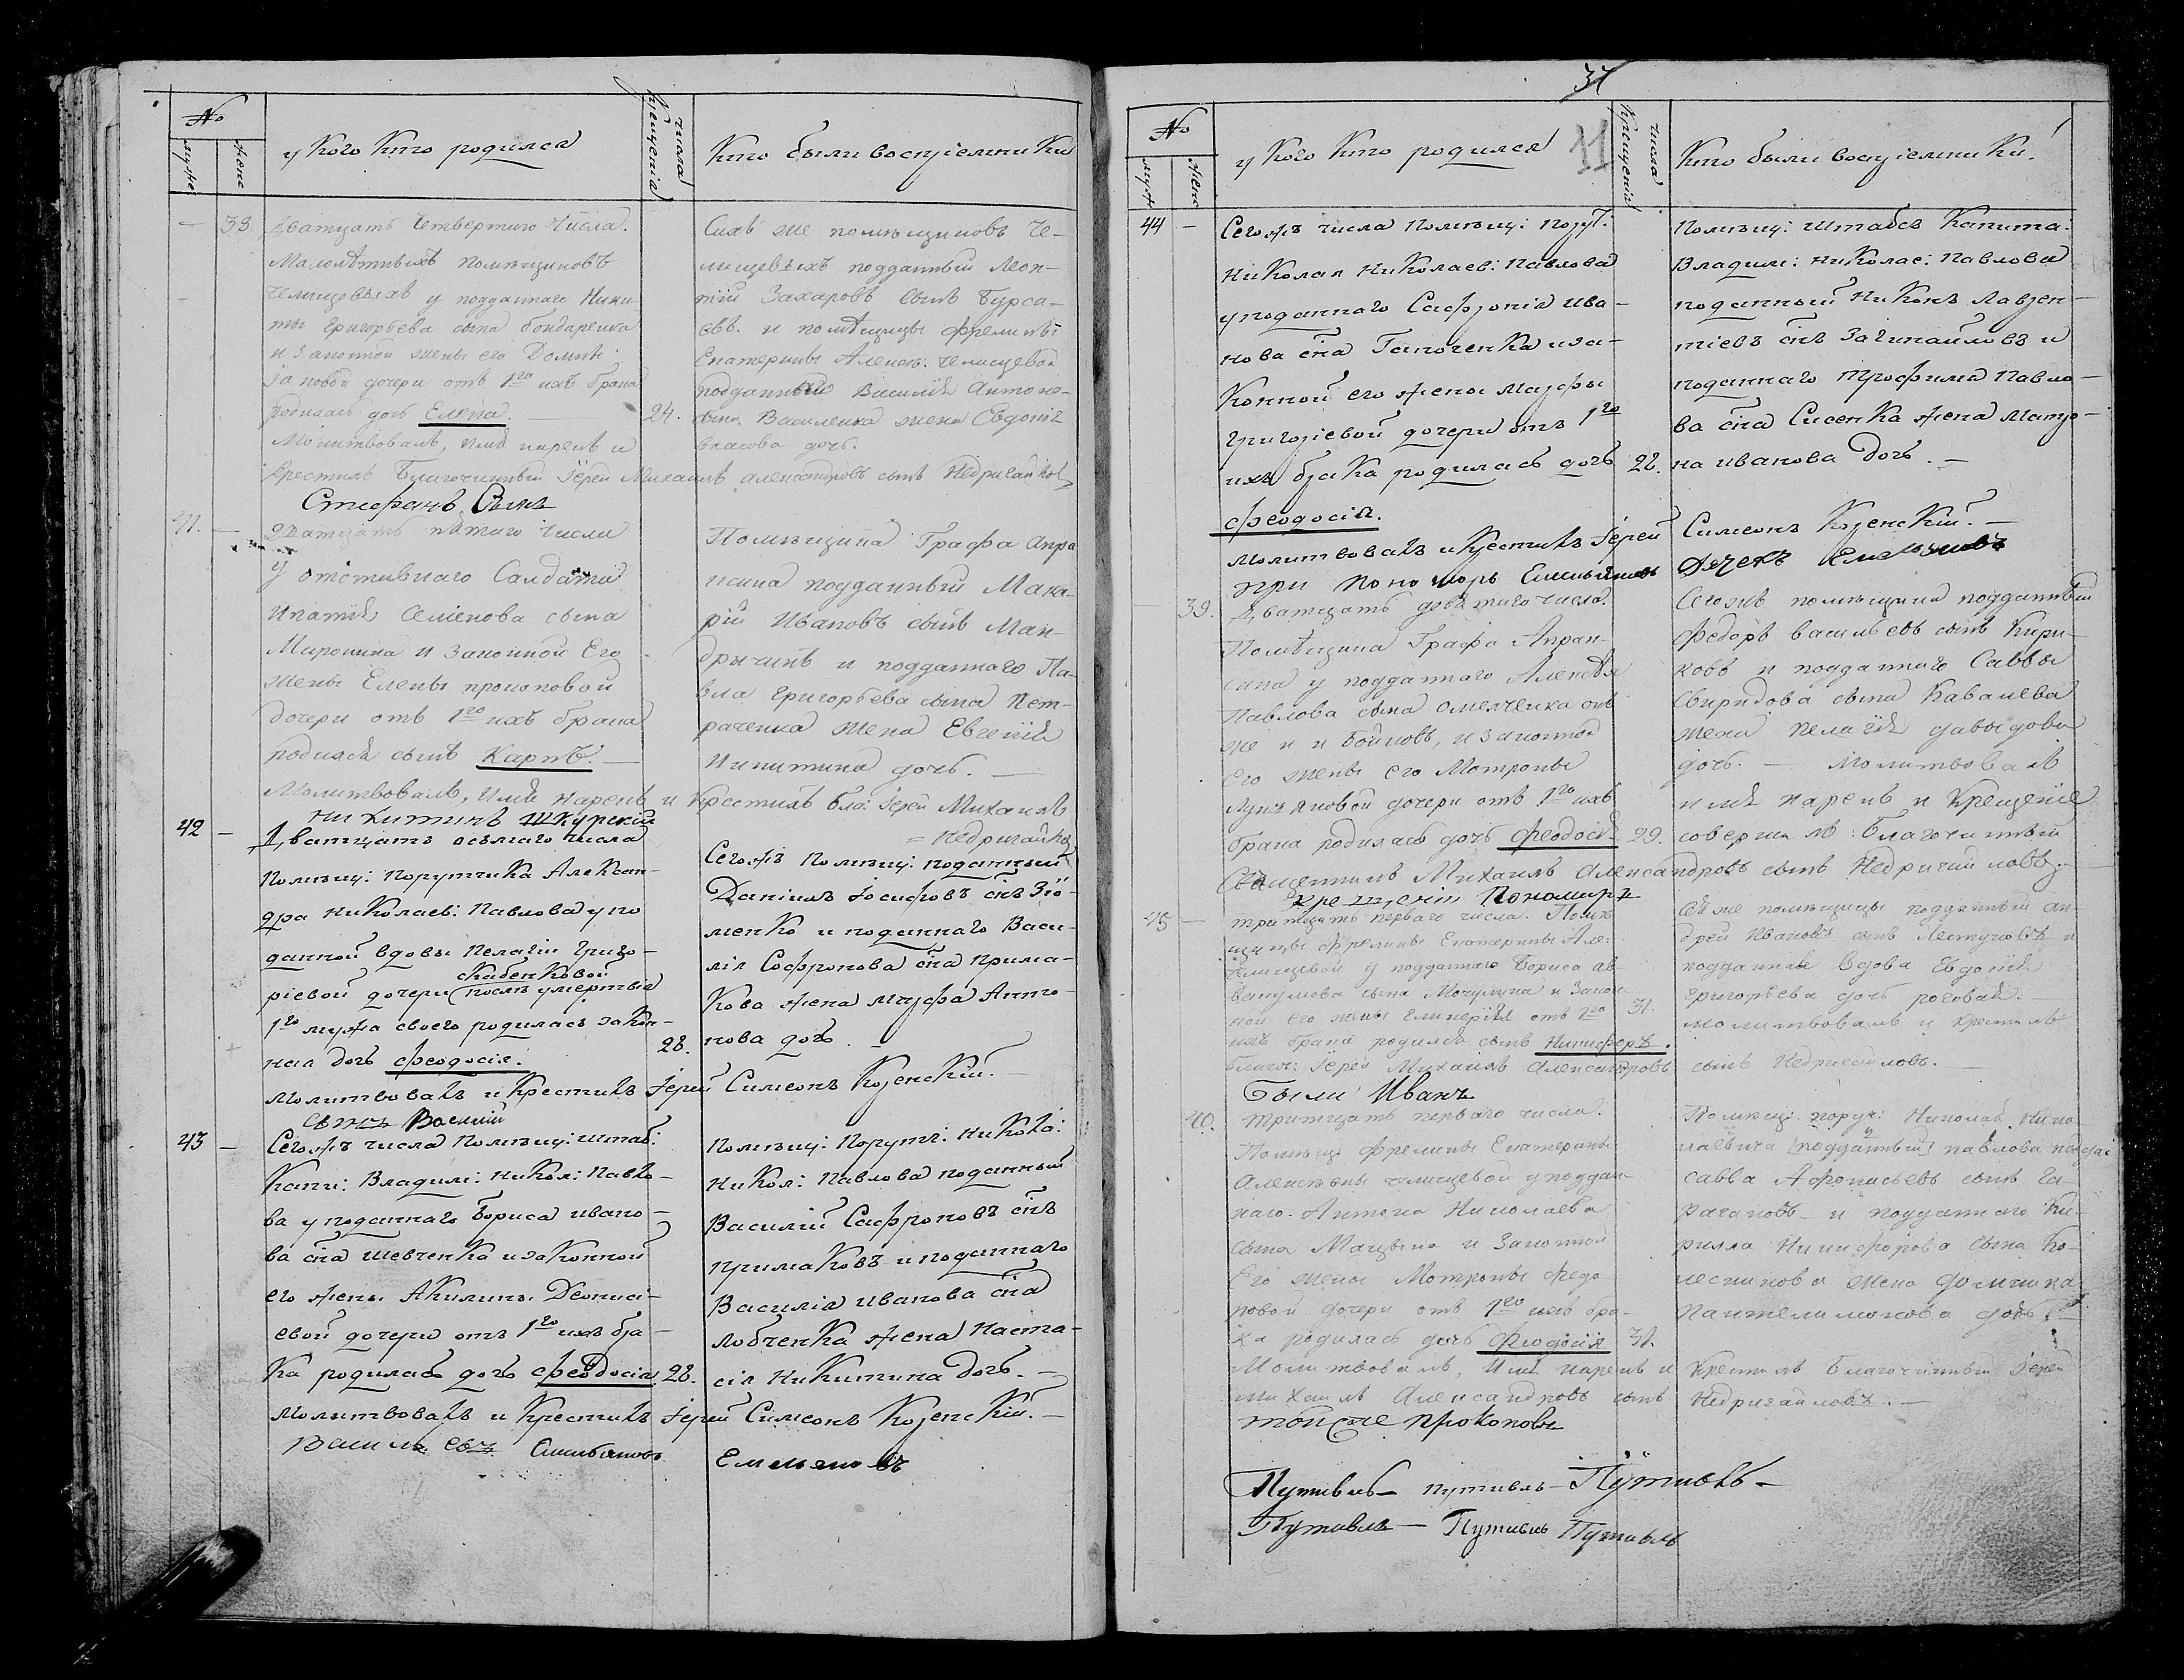 №
муже
жене
у кого кто родился
числа крещенія
Кто были воспріемники
38. Дватцать четвертого числа.
Малолѣтныхъ помѣщиковъ
челищевыхъ у подданнаго Ники
ты Григорьева сына бондаренка
и Законной жены его Домни
яновой дочери отъ 1го ихъ брака
родилась дочь Елена. 24.
Молитвовалъ, имя нарекъ и
Крестилъ Благочинный Іерей Михаилъ александровъ сынъ Недригайлов
Сихъ же помѣщиковъ Че-
лищевыхъ подданный Леон-
тій Захаровъ сынъ Бурса-
евъ. и помѣщицы фрелины
Екатерины Алексѣ: Челищевой
подданнаго Василія Антоно-
сына Василенка жена Евдокія
власова дочь.
Стефанъ Сынъ
41. —
Дватцать пятаго числа
У отставнаго Салдата
Ипатія Семенова сына
Мирошика и Законной Его
жены Елены прокоповой
дочери отъ 1го ихъ брака
родился сынъ Карпъ. —
Молитвовалъ, Имя нарекъ и Крестилъ бла: Іерей Михаилъ
= Недригайлов
Помѣщика Графа Апра
ксина подданный Мака-
рій Ивановъ сынъ Ман-
дрыкинъ и подданнаго Па-
вла Григорьева сына Пет-
раченка жена Евгенія
Никитина дочь. —
Никитинъ Шкурскій
42 —
Дватцать осьмаго числа
Помѣщ: Порутчика Алексан-
дра Николаев: Павлова у по
данной вдовы Пелагіи Григо-
ріевой дочери Скабенковой послѣ умертвія
1го мужа своего родилась закон-
ная дочь Феодосія. 28.
Молитвовалъ и Крестилъ Іерей Симеонъ Козенскій. —
Сегожъ Помѣщ: поданный
Даніилъ Іосифовъ снъ Зю-
менко и поданнаго Васи-
лія Софронова сна Прима-
кова жена Марфа Анто-
нова дочь. —
Сынъ Василій
43 —
Сегожъ числа Помѣщ: штаб:
Капи: Владим: Никол: Павло-
ва у поданнаго Бориса ивано-
ва сна шевченка и законной
его жены Акилины Деониси-
евой дочери отъ 1го ихъ бра-
ка родилась дочь Феодосія. 28.
Молитвовалъ и Крестилъ Іерей Симеонъ Козенскій. —
Помѣщ: Порутч: Никола:
Никол: Павлова поданный
Василій Сафроновъ снъ
примаковъ и поданнаго
Василія иванова сна
лобченка жена Наста-
сія Никитина дочь. —
Васильевъ Емельяновъ Емельяновъ
37
11
№
муж
жене
у кого кто родился
числа Крещенія
Кто были воспріемники.
44 —
Сегожъ числа Помѣщ: Порут:
Николая Николаев: Павлова
у поданнаго Сафронія ива-
нова сна Гапоченка и за-
конной его жены Марфы
Григоріевой дочери отъ 1го
ихъ брака родилась дочь 28.
Феодосія.
Молитвовалъ и Крестилъ Іерей Симеонъ Козенскій. —
Помѣщ: штабсъ Капита:
Владим: Николае: Павлова
поданный Никонъ Лаврен-
тіевъ снъ Загинайловъ и
поданнаго Трофима Павло-
ва сна Сисенка жена Матро-
на иванова дочь. —
при Пономарь Емельяновъ Дячекъ Емельяновъ
39.
Дватцать девятаго числа.
Помѣщика Графа Апрак-
сина у подданнаго Алексѣя
Павлова сына Омелченка онъ
же и и Бойковъ, и Законной
Его жены его Мотроны
лукіяновой дочери отъ 1го ихъ
брака родилась дочь Феодосія 29.
Священникъ Михаилъ Александровъ сынъ Недригайловъ. —
Сегожъ помѣщика подданный
Федоръ васильевъ сынъ Кири-
ковъ и подданнаго Саввы
Свиридова сына Кавалева
жена Пелагія давыдова
дочь. — Молитвовалъ
имя нарекъ и Крещеніе
совершилъ: Благочинный
крещеніи Пономарь
45 —
тритцать перваго числа. Помѣ
щицы фрелины Екатерины Але:
Челищевой у подданнаго Бориса ав
вакумова сына Мокушина и Закон-
ной его жены Гликеріи отъ 1го 31.
ихъ брака родился сынъ Никифоръ.
благоч: Іерей Михаилъ Александровъ сынъ Недригайловъ. —
сей же помѣщицы подданный ан-
дрей Ивановъ сынъ Летуновъ и
подданная вдова Евдокія
Григорьева дочь роговая. —
молитвовалъ и Крестилъ
Были Иванъ
40.
тритцать перваго числа.
Помѣщ: фрелины Екатерины
Алексѣвны челищевой у поддан-
наго Антона Николаева
сына Мацына и Законной
Его жены Мотроны федо
ровой дочери отъ 1го ихъ бра-
ка родилась дочь Феодосія 31.
Молитвовалъ, Имя нарекъ и Крестилъ Благочинный Іерей
михаилъ Александровъ сынъ Недригайловъ. —
Помѣщ: поруч: Николая Нико
лаевича [подданный] павлова поддан
савва Афонасьевъ сынъ Га-
рагановъ и подданнаго Ки-
рилла Никифорова сына Ко-
лесникова жена домникия
Пантелимонова дочь. —
тойсже прокоповъ
Путивль — путивль — Путивль —
Путивль — Путивль Путивль